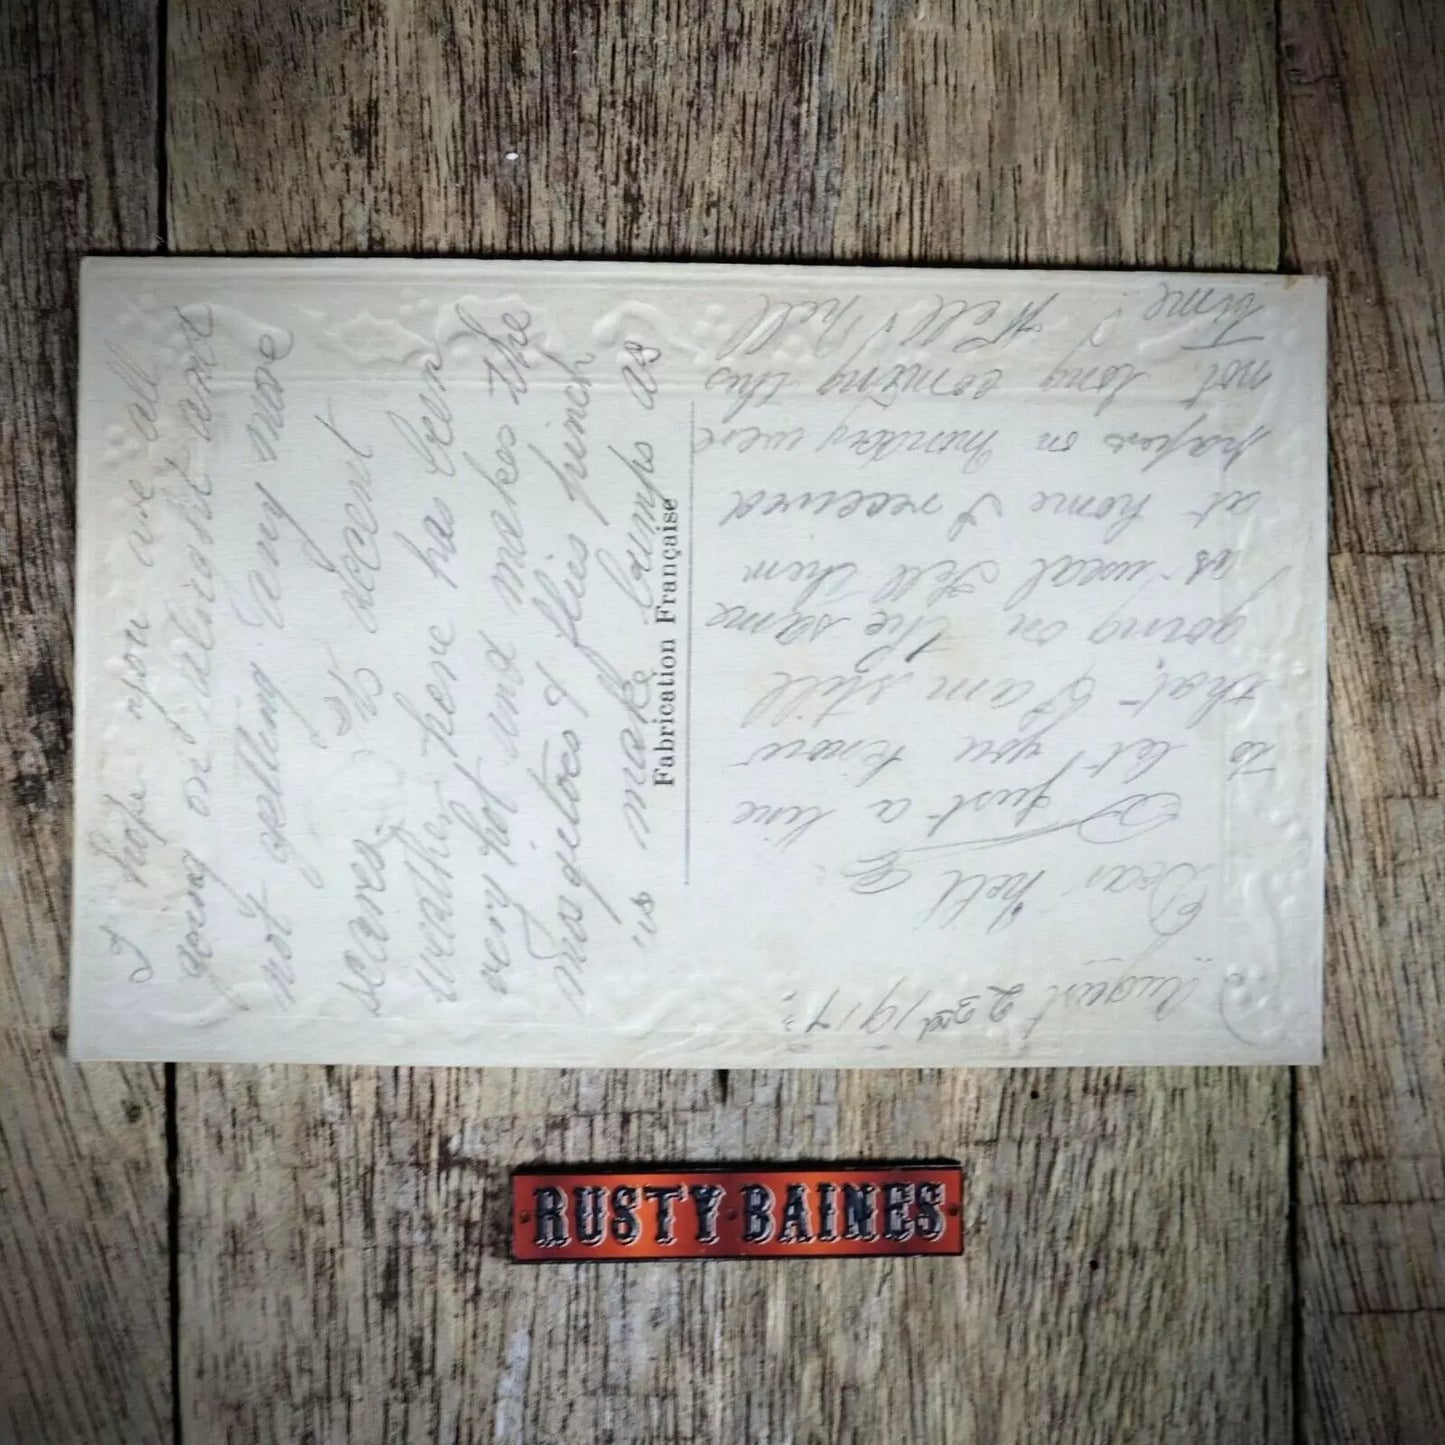 August 23rd 1917
Dear Nell
Just a line
to let you know
that I am still
going on the same
as usual tell them
at home I received
papers on monday were
not long coming this
time. Well Nell
I hope you are all
going on alright and
not getting any more
scares. The decent
weather here has been
very hot and makes the
musqetoes & flies pinch
us make bumps as
Fabrication Française
RUSTY BAINES